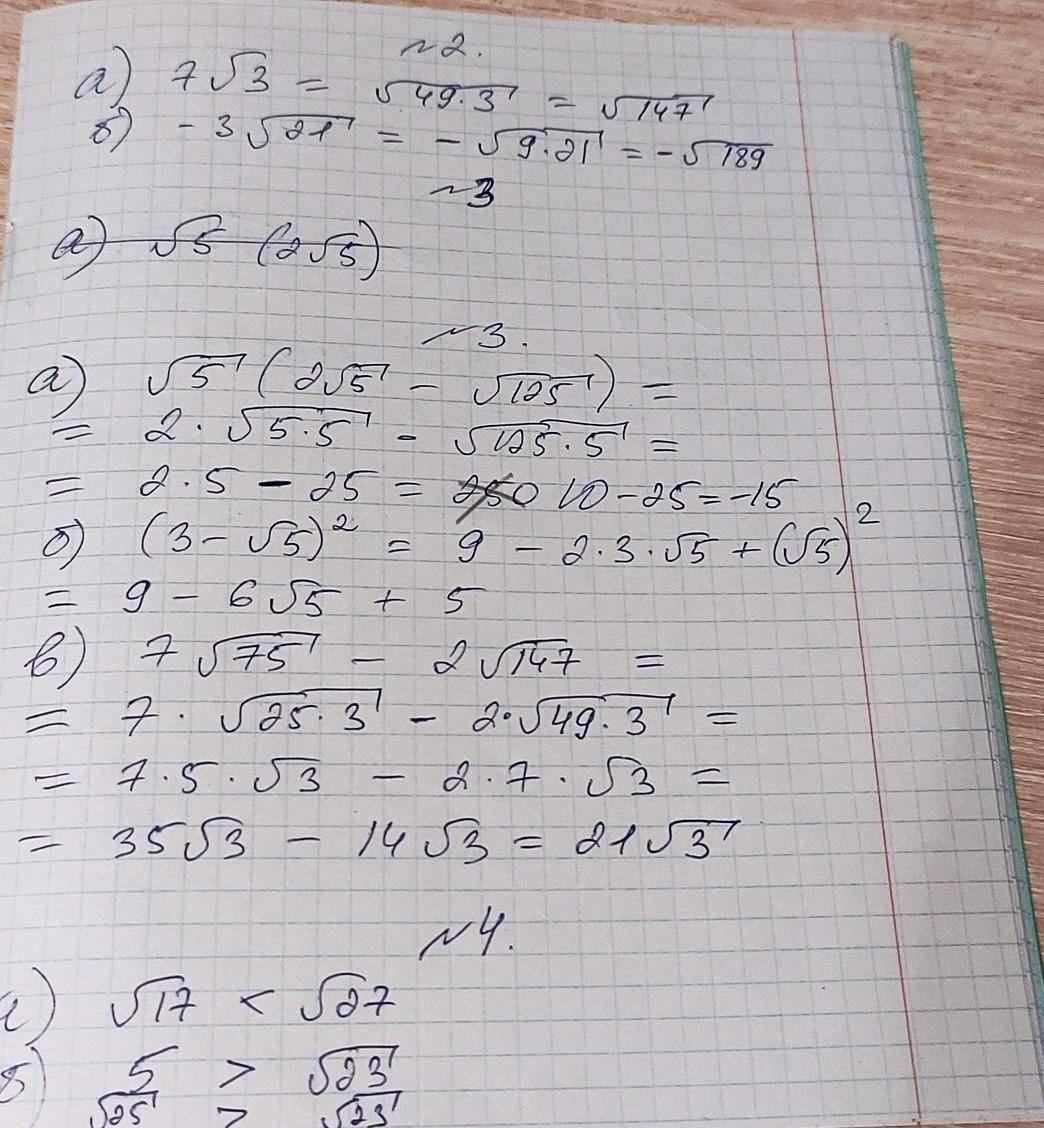 №2.
а) 7√3 = √49·3 = √147
б) -3√21 = -√9·21 = -√189
№3
а) √5 (2√5)
№3.
а) √5 (2√5 - √125) =
= 2·√5·5 - √125·5 =
= 2·5 - 25 = 250 10-25=-15
б) (3-√5)² = 9 - 2·3·√5 + (√5)²
= 9 - 6√5 + 5
в) 7√75 - 2√147 =
= 7·√25·3 - 2·√49·3 =
= 7·5·√3 - 2·7·√3 =
= 35√3 - 14√3 = 21√3
№4.
а) √17 < √27
б) 5 > √23
√25 > √23